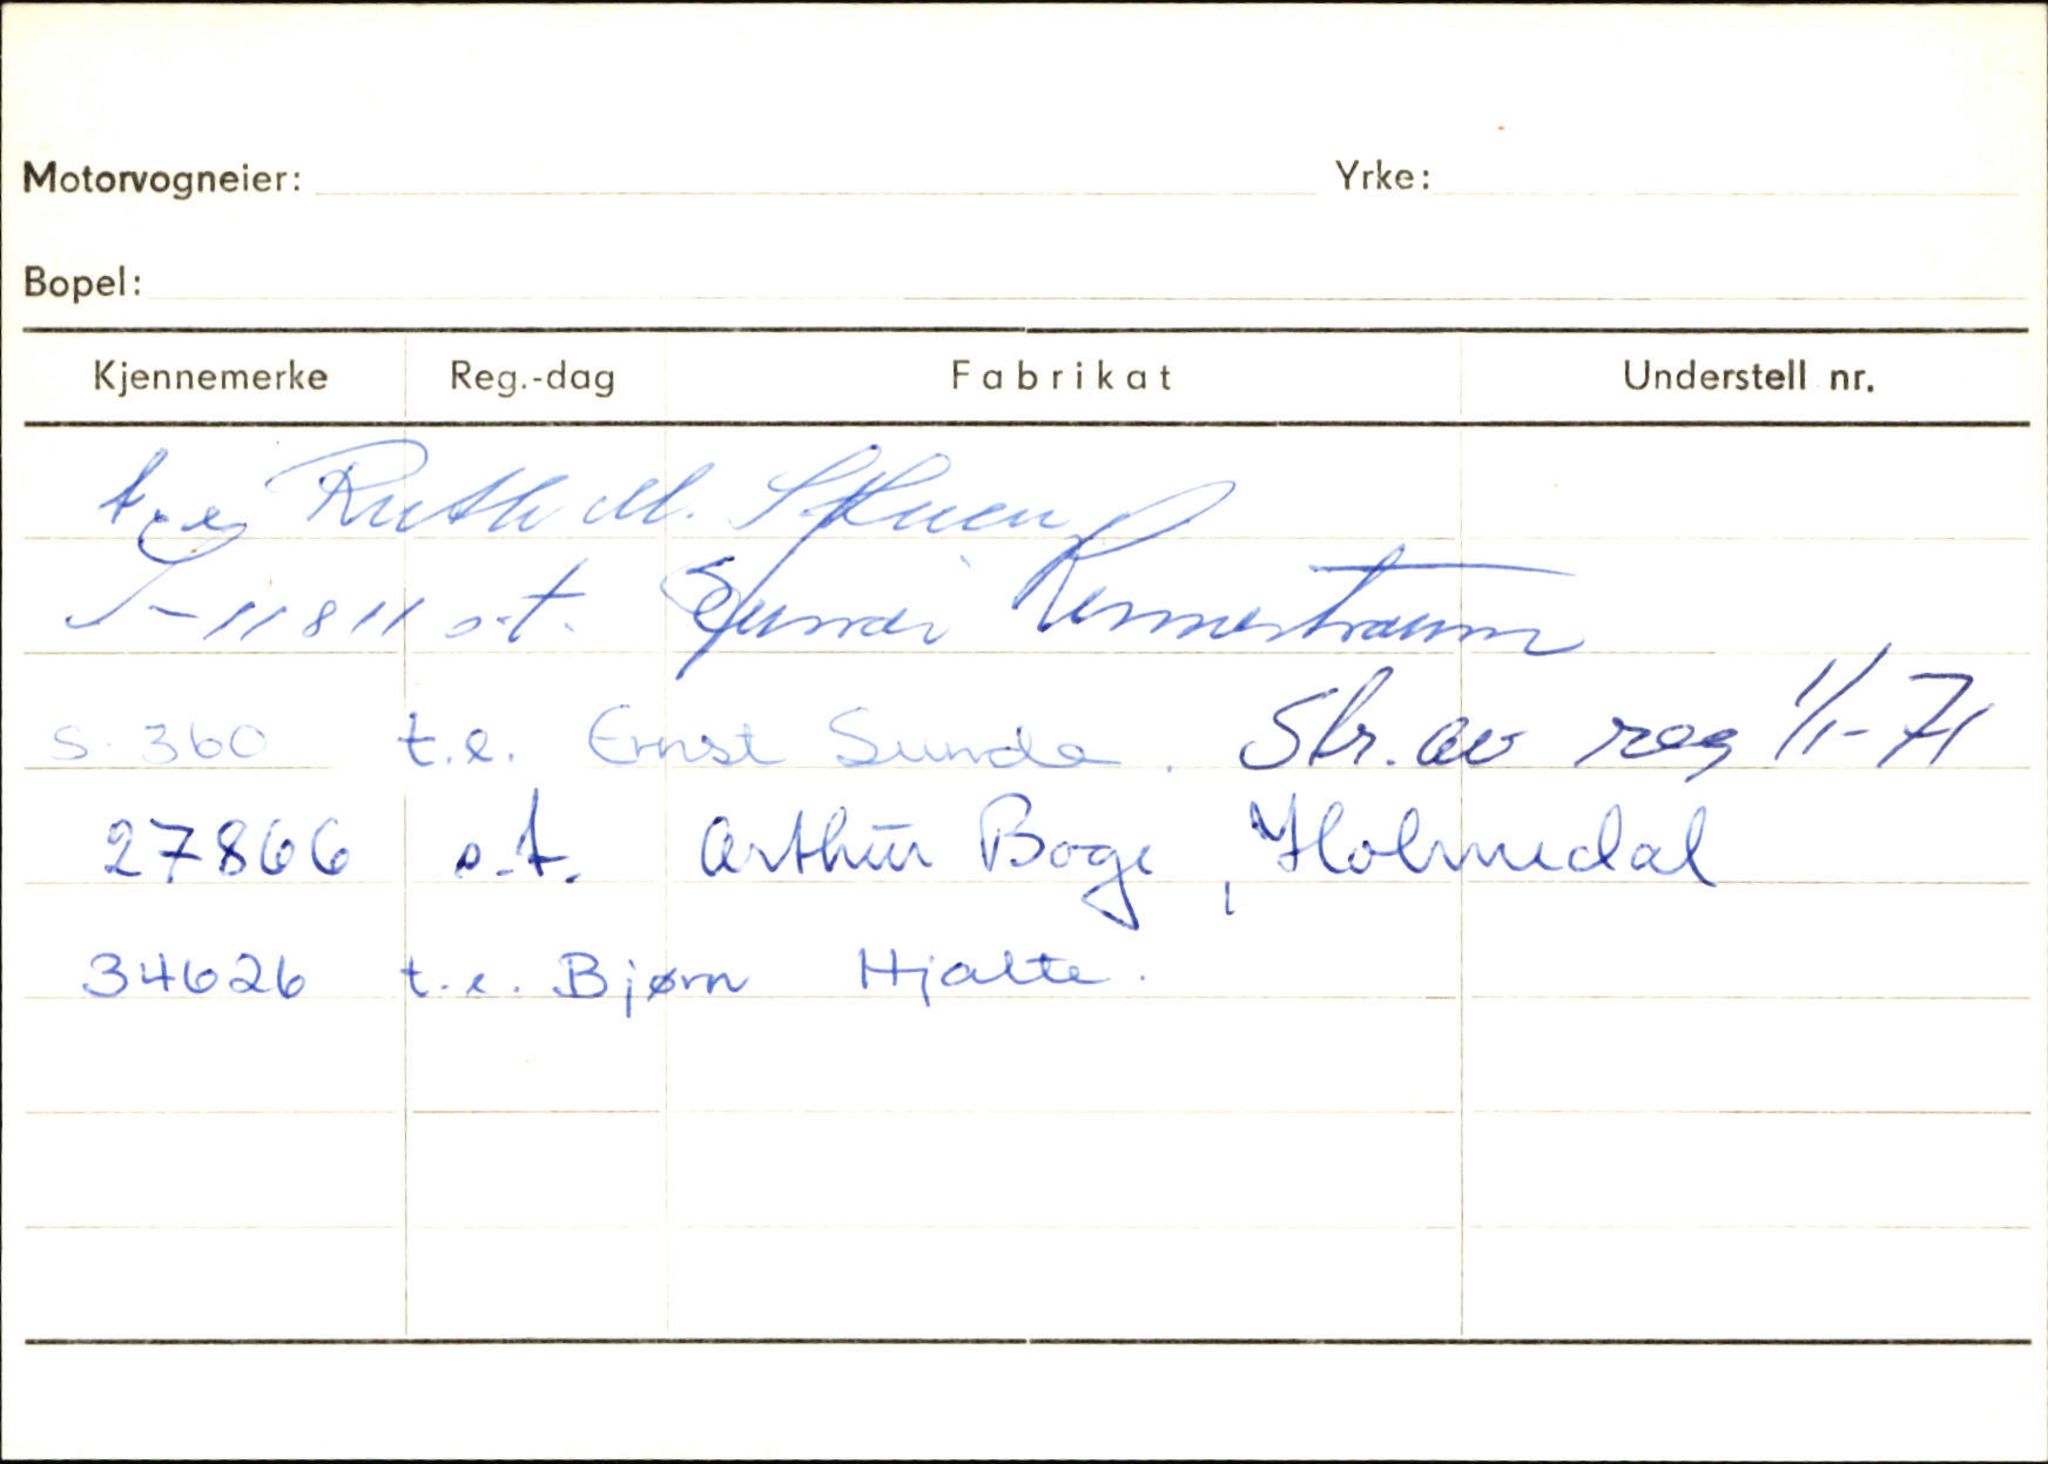 Motorvogneier: Yrke:
Bopel:
Kjennemerke Reg.-dag Fabrikat Understell nr.
t.e. Ruth M. Skuen
S-11811 o.t.
S-360 t.e. Ernst Sunde. Slr. av reg 1/1-71
27866 o.t. Arthur Boge, Holmedal
34626 t.e. Bjørn Hjalte.